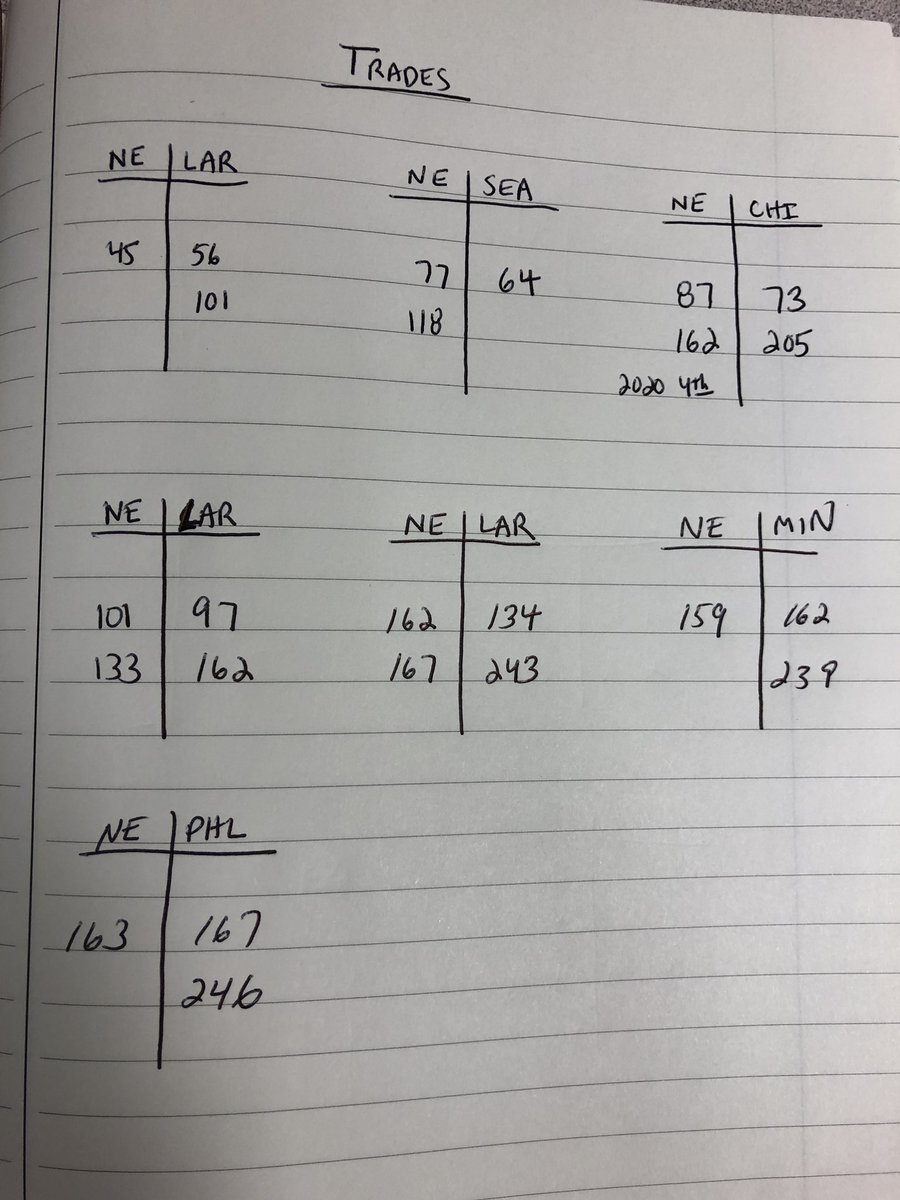 TRADES
NE LAR
45 56
101
NE SEA
77 64
118
NE CHI
87 73
162 205
2020 4th
NE LAR
101 97
133 162
NE LAR
162 134
167 243
NE MIN
159 162
239
NE PHL
163 167
246